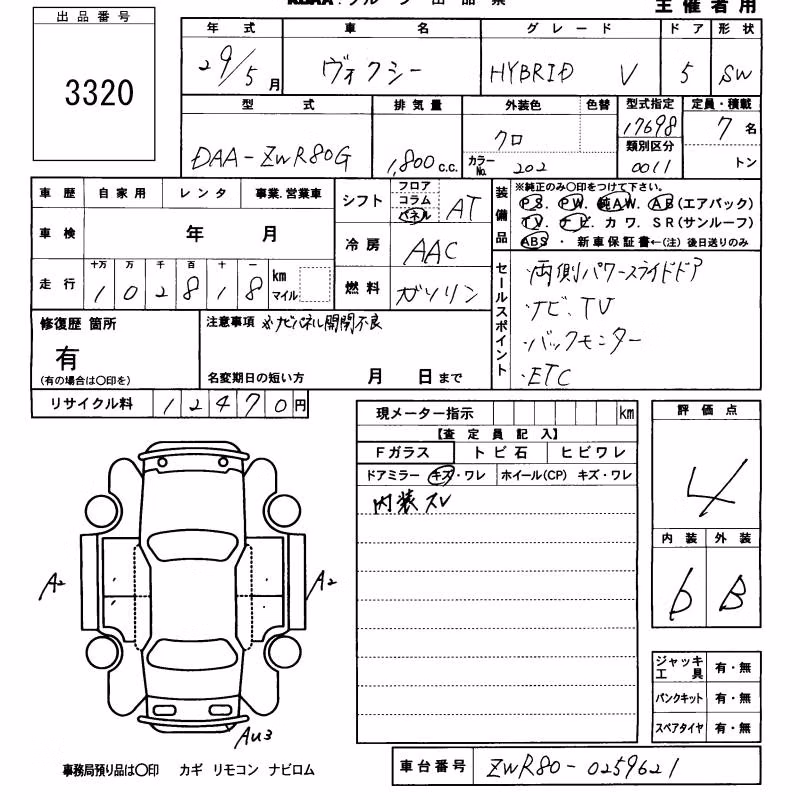 主催者用
出品番号
3320
年式 車名 グレード ドア 形状
29/5月 ヴォクシー HYBRID V 5 SW
型式 排気量 外装色 色替 型式指定 定員・積載
DAA-ZWR80G 1,800c.c. クロ 17698 7名
カラーNo. 202 類別区分 0011 トン
車歴 自家用 レンタ 事業.営業車
車検 年 月
走行 十万 万 千 百 十 一
102818 km マイル
シフト フロア コラム パネル AT
冷房 AAC
燃料 ガソリン
装備品
※純正のみ〇印をつけて下さい。
PS. PW. 純AW. AB(エアバック)
TV. ナビ. カワ. SR(サンルーフ)
ABS ・ 新車保証書←(注) 後日送りのみ
セールスポイント
・両側パワースライドドア
・ナビ、TV
・バックモニター
・ETC
修復歴 箇所
有
(有の場合は〇印を)
注意事項 ※ナビパネル開閉不良
名変期日の短い方 月 日まで
リサイクル料 12470円
現メーター指示 km
【査定員記入】
Fガラス トビ石 ヒビワレ
ドアミラー キズ・ワレ ホイール(CP) キズ・ワレ
内装スレ
評価点
4
内装 外装
6 B
A2 A2
AU3
ジャッキ工具 有・無
パンクキット 有・無
スペアタイヤ 有・無
事務局預り品は〇印 カギ リモコン ナビロム
車台番号 ZWR80-0259621